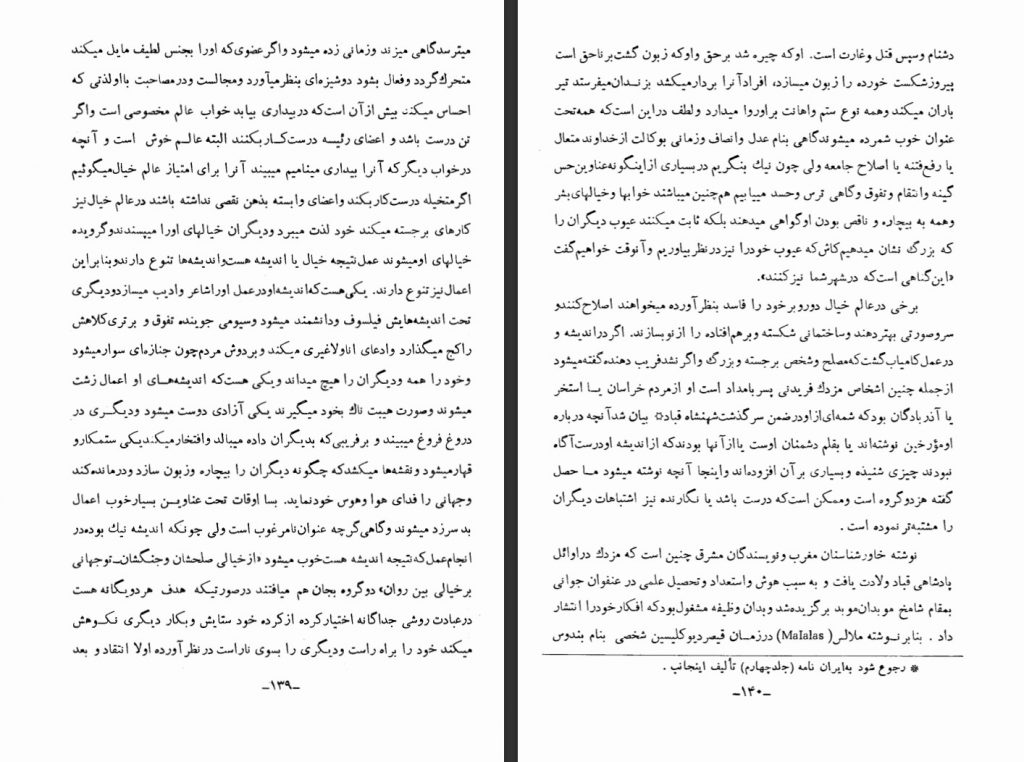 میترسدگاهی میزند وزمانی زده میشود واگرعضوی‌که اورا بجنس لطیف مایل میکند
متحرک‌گردد وفعال بشود دوشیزه‌ای بنظرمیآورد ومجالست ودرمصاحبت بااولذتی که
احساس میکند بیش ازآن است‌که دربیداری بیابد خواب عالم مخصوصی است واگر
تن درست باشد و اعضای رئیسه درست‌کاربکنند البته عالم خوش است و آنچه
درخواب دیگرکه آنرا بیداری مینامیم میبیند آنرا برای امتیاز عالم خیال‌میگوئیم
اگرمتخیله درست‌کاربکند واعضای وابسته بذهن نقصی نداشته باشند درعالم خیال‌نیز
کارهای برجسته میکند خود لذت میبرد ودیگران خیالهای اورا میپسندندوگرویده
خیالهای اومیشوند عمل‌نتیجه خیال یا اندیشه هست‌واندیشه‌ها تنوع دارندوبنابراین
اعمال‌نیزتنوع دارند. یکی‌هست‌که‌اندیشه‌اودرعمل اوراشاعر وادیب میسازدودیگری
تحت اندیشه‌هایش فیلسوف ودانشمند میشود وسیومی جوینده تفوق و برتری‌کلاهش
راکج میگذارد وادعای اناولاغیری میکند وبردوش مردم‌چون جنازه‌ای سوارمیشود
وخود را همه ودیگران را هیچ میداند ویکی هست‌که اندیشه‌های او اعمال زشت
میشوند وصورت هیبت ناك بخود میگیرند یکی آزادی دوست میشود ودیگری در
دروغ فروغ میبیند و برفریبی‌که بدیگران داده میبالد وافتخارمیکندیکی ستمکارو
قهارمیشود ونقشه‌ها میکشدکه چگونه دیگران را بیچاره وزبون سازد ودرمانده‌کند
وجهانی را فدای هوا وهوس خودنماید. بسا اوقات تحت عناوین بسیارخوب اعمال
بدسرزد میشوند وگاهی‌گرچه عنوان‌نامرغوب است ولی چونکه اندیشه نیك بوده‌در
انجام‌عمل‌که‌نتیجه اندیشه هست‌خوب میشود «ازخیالی صلحشان وجنگشان_توجهانی
برخیالی بین روان» دوگروه بجان هم میافتند درصورتیکه هدف هردویگانه هست
درعبادت روشی جداگانه اختیارکرده ازکرده خود ستایش وبکار دیگری نکوهش
میکند خود را براه راست ودیگری را بسوی ناراست درنظرآورده اولا انتقاد و بعد
_۱۳۹_
دشنام وسپس قتل وغارت است. اوکه چیره شد برحق واوکه زبون گشت‌برناحق است
پیروزشکست خورده را زبون میسازد، افرادآنرا بردارمیکشد بزندان‌میفرستد تیر
باران میکند وهمه نوع ستم واهانت براوروا میدارد ولطف دراین است‌که همه‌تحت
عنوان خوب شمرده میشوندگاهی بنام عدل وانصاف وزمانی بوکالت ازخداوند متعال
یا رفع‌فتنه یا اصلاح جامعه ولی چون نیك بنگریم دربسیاری ازاینگونه‌عناوین‌حس
گینه وانتقام وتفوق وگاهی ترس وحسد مییابیم هم‌چنین‌میباشند خوابها وخیالهای‌بشر
وهمه به بیچاره و ناقص بودن اوگواهی میدهند بلکه ثابت میکنند عیوب دیگران را
که بزرگ نشان میدهیم‌کاش‌که عیوب خودرا نیزدرنظربیاوریم وآنوقت خواهیم‌گفت
«این‌گناهی است‌که درشهرشما نیزکنند».
برخی درعالم خیال دوروبرخود را فاسد بنظرآورده میخواهند اصلاح‌کنندو
سروصورتی بهتردهند وساختمانی شکسته وبرهم‌افتاده را ازنوبسازند. اگردراندیشه و
درعمل‌کامیاب‌گشت‌که‌مصلح وشخص برجسته وبزرگ واگرنشدفریب دهنده‌گفته‌میشود
ازجمله چنین اشخاص مزدك فریدنی پسربامداد است او ازمردم خراسان یا استخر
یا آذربادگان بودکه شمه‌ای‌ازاودرضمن سرگذشت‌شهنشاه قباد* بیان شدآنچه درباره
اومؤرخین نوشته‌اند یا بقلم دشمنان اوست یاازآنها بودندکه ازاندیشه اودرست‌آگاه
نبودند چیزی شنیده وبسیاری برآن افزوده‌اند واینجا آنچه نوشته میشود ما حصل
گفته هردوگروه است وممکن است‌که درست باشد یا نگارنده نیز اشتباهات دیگران
را مشتبه‌تر نموده است .
نوشته خاورشناسنان مغرب ونویسندگان مشرق چنین است که مزدك دراوائل
پادشاهی قباد ولادت یافت و به سبب هوش واستعداد وتحصیل علمی در عنفوان جوانی
بمقام شامخ موبدان‌موبد برگزیده‌شد وبدان وظیفه مشغول‌بودکه افکارخودرا انتشار
داد . بنابرنوشته ملالس( Malalas) درزمان قیصردیوکلیسین شخصی بنام بندوس
* رجوع شود به‌ایران نامه (جلدچهارم) تألیف اینجانب .
_۱۴۰_